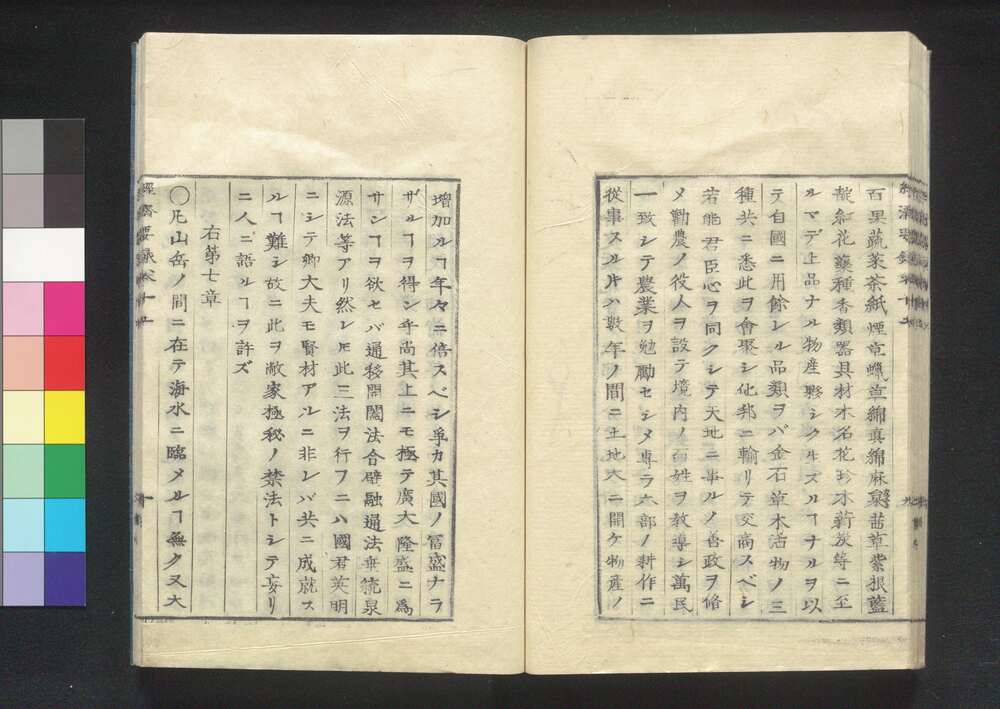 百果蔬菜茶紙煙草蠟草綿真綿麻枲茜草紫根藍
靛紅花藥種香類器具材木名花珍木薪炭等ニ至
ルマデ上品ナル物産夥シク生ズルヿナルヲ以
テ自國ニ用餘シル品類ヲバ金石草木活物ノ三
種共ニ悉此ヲ會聚シ化邦ニ輸リテ交商スベシ
若能君臣心ヲ同クシテ天地ニ事ルノ善政ヲ脩
メ勸農ノ役人ヲ設テ境内ノ百姓ヲ教導シ萬民
一致シテ農業ヲ勉勵セシメ専ラ六部ノ耕作ニ
從事スル片ハ數年ノ間ニ土地大ニ開ケ物産ノ
増加ルヿ年々ニ倍スベシ爭カ其國ノ冨盛ナラ
ザルヿヲ得ン乎尚其上ニモ極テ廣大隆盛ニ為
サンヿヲ欲セバ通移開闔法合辟融通法垂統泉
源法等アリ然レ𪜈此三法ヲ行フニハ國君英明
ニシテ卿大夫モ賢材アルニ非レバ共ニ成就ス
ルヿ難シ故ニ此ヲ敝家極秘ノ禁法トシテ妄リ
ニ人ニ語ルヿヲ許ズ
右第七章
〇凡山岳ノ間ニ在テ海水ニ臨メルヿ無ク又大
經濟要録卷十五